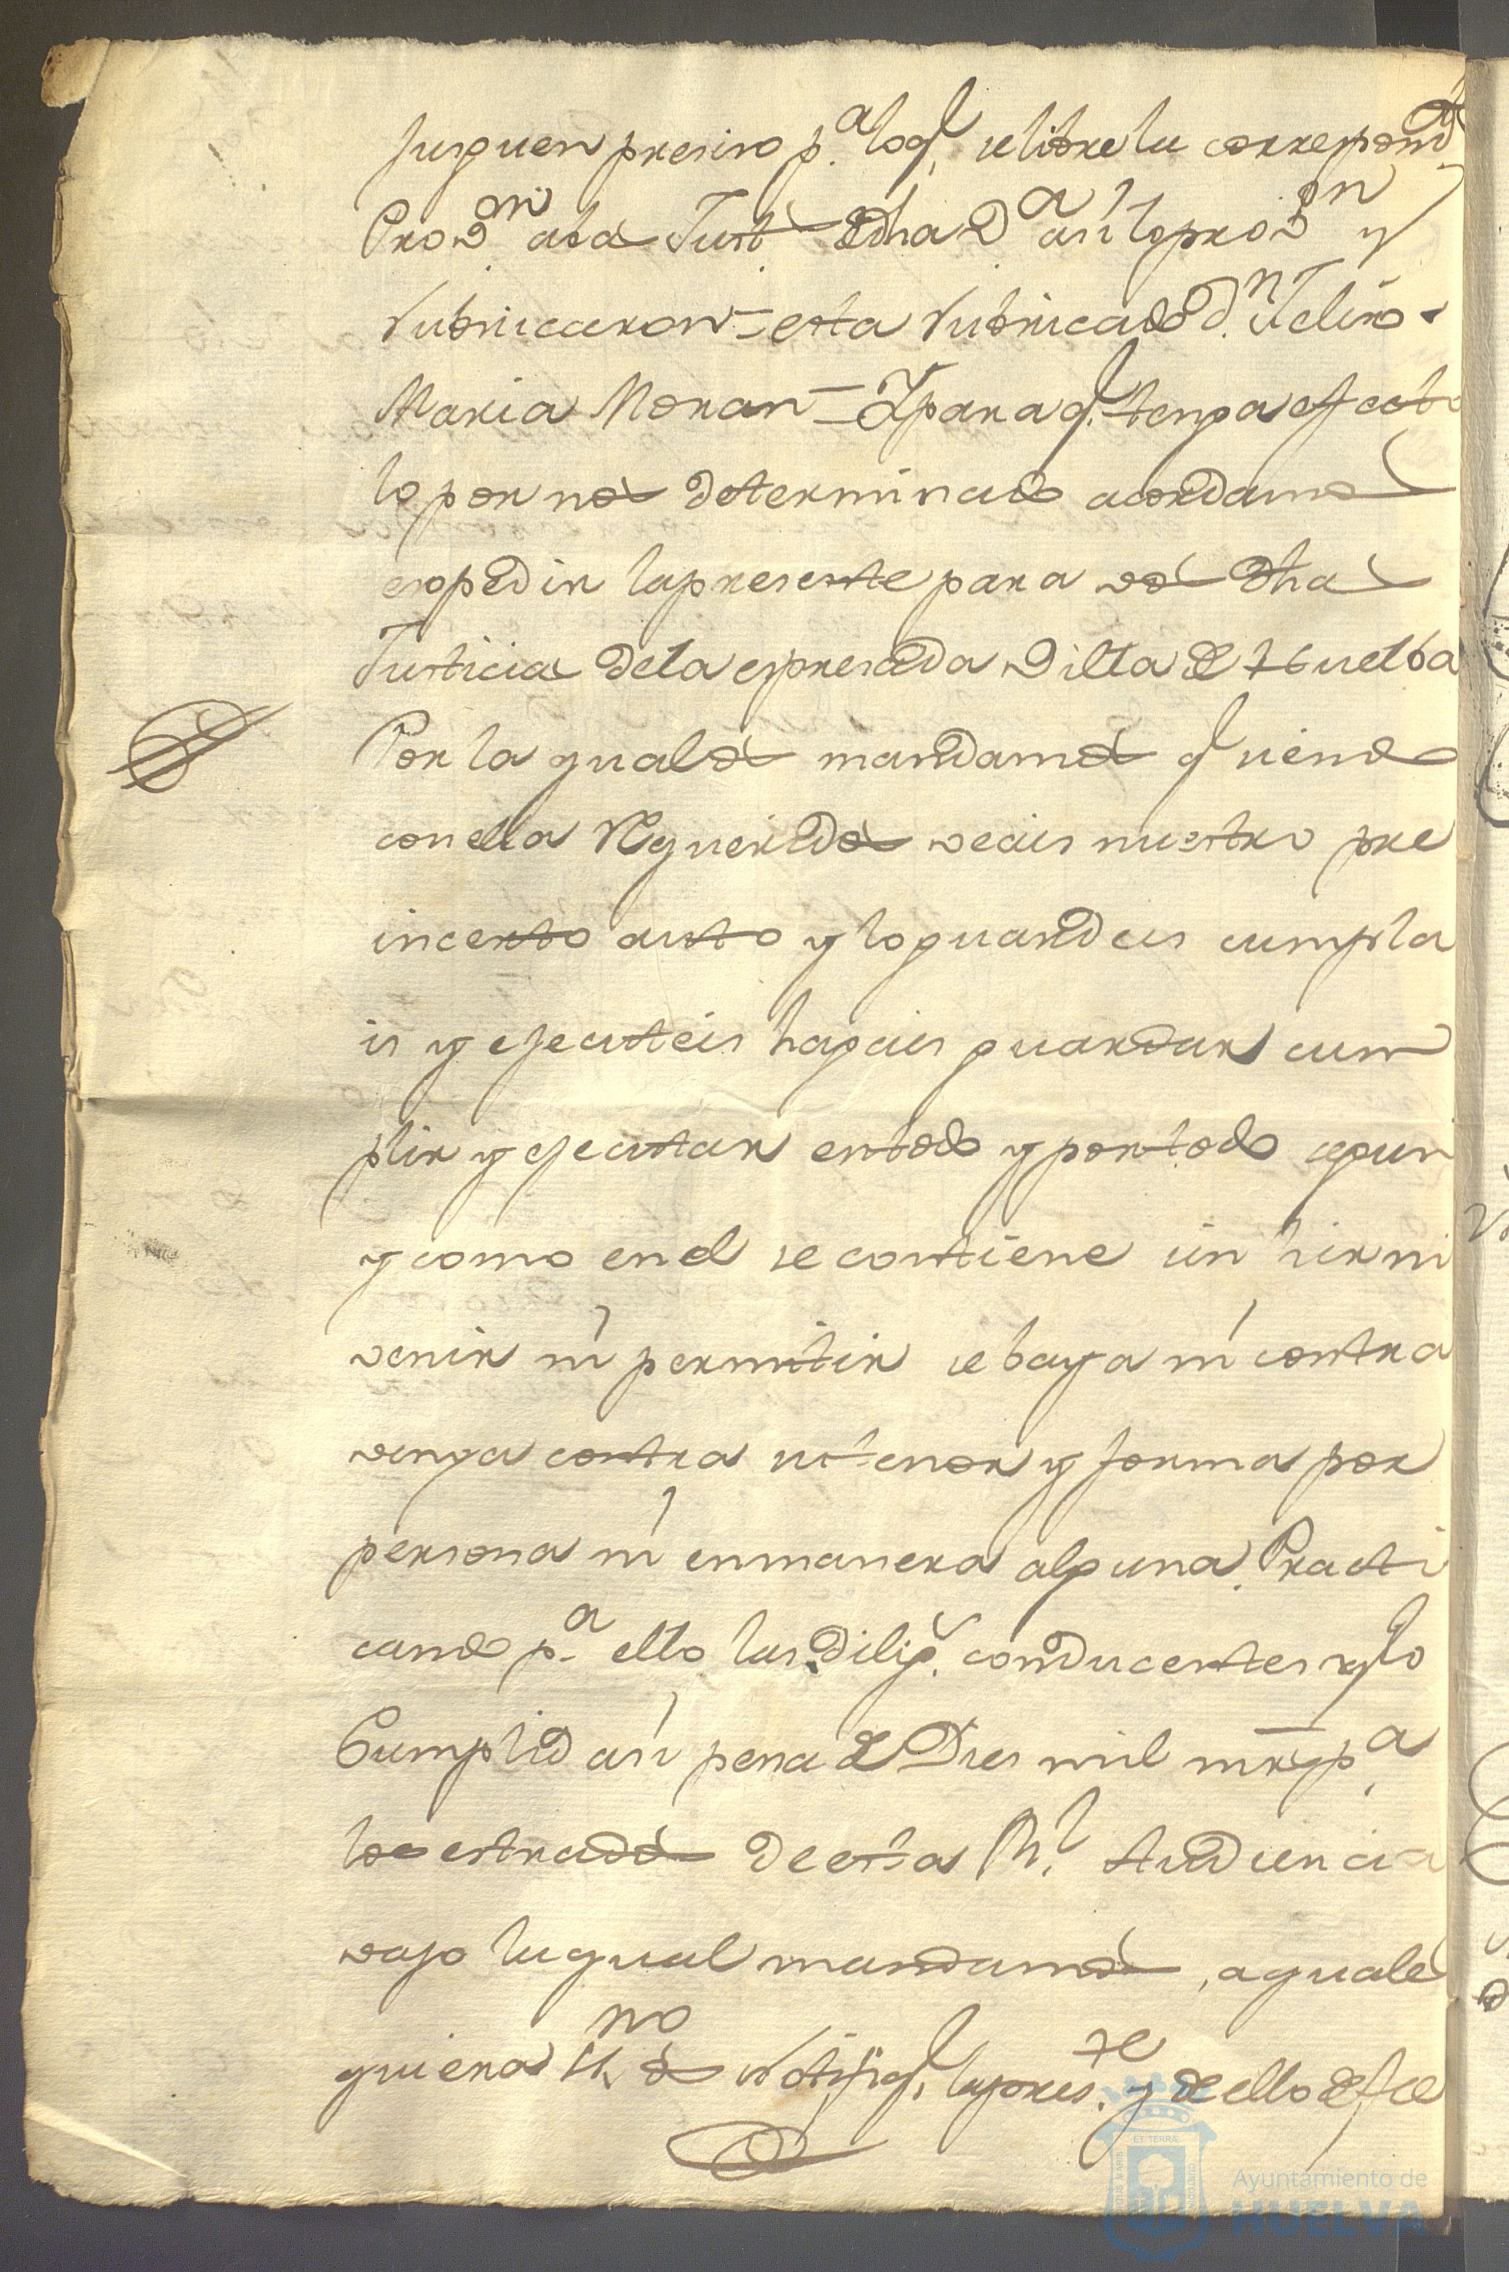 Jusguen preciso p.ª loq.l se libre la correspond.te
Prov.on a la Just.ª de dha V.ª asi lo prov.n y
rubricaron = esta rubricado D.n Felix
Maria Moran = Y para q.e tenga efecto
lo por nos determinado acordamos
expedir la presente para vos dha
Justicia dela expresada Villa de Huelba
Por la qual os mandamos q.e siendo
con ella Requeridos veais nuestro pre
incerto auto y lo guardeis cumpla
is y ejecuteis hagais guardar cum
plir y ejecutar entodo y portodo segun
y como en el se contiene sin hir ni
venir ni permitir se baya ni contra
venga contra su tenor y forma por
persona ni enmanera alguna. Practi
cando p.ª ello las dilig.s conducentes y lo
Cumplid asi pena de Dies mil mrs p.ª
los estrados de esta R.l Audiencia
vajo la qual mandamos, a qual
quiera ss.no os Notifiq.e la pres.te y de ello de fee
Ayuntamiento de
HUELVA